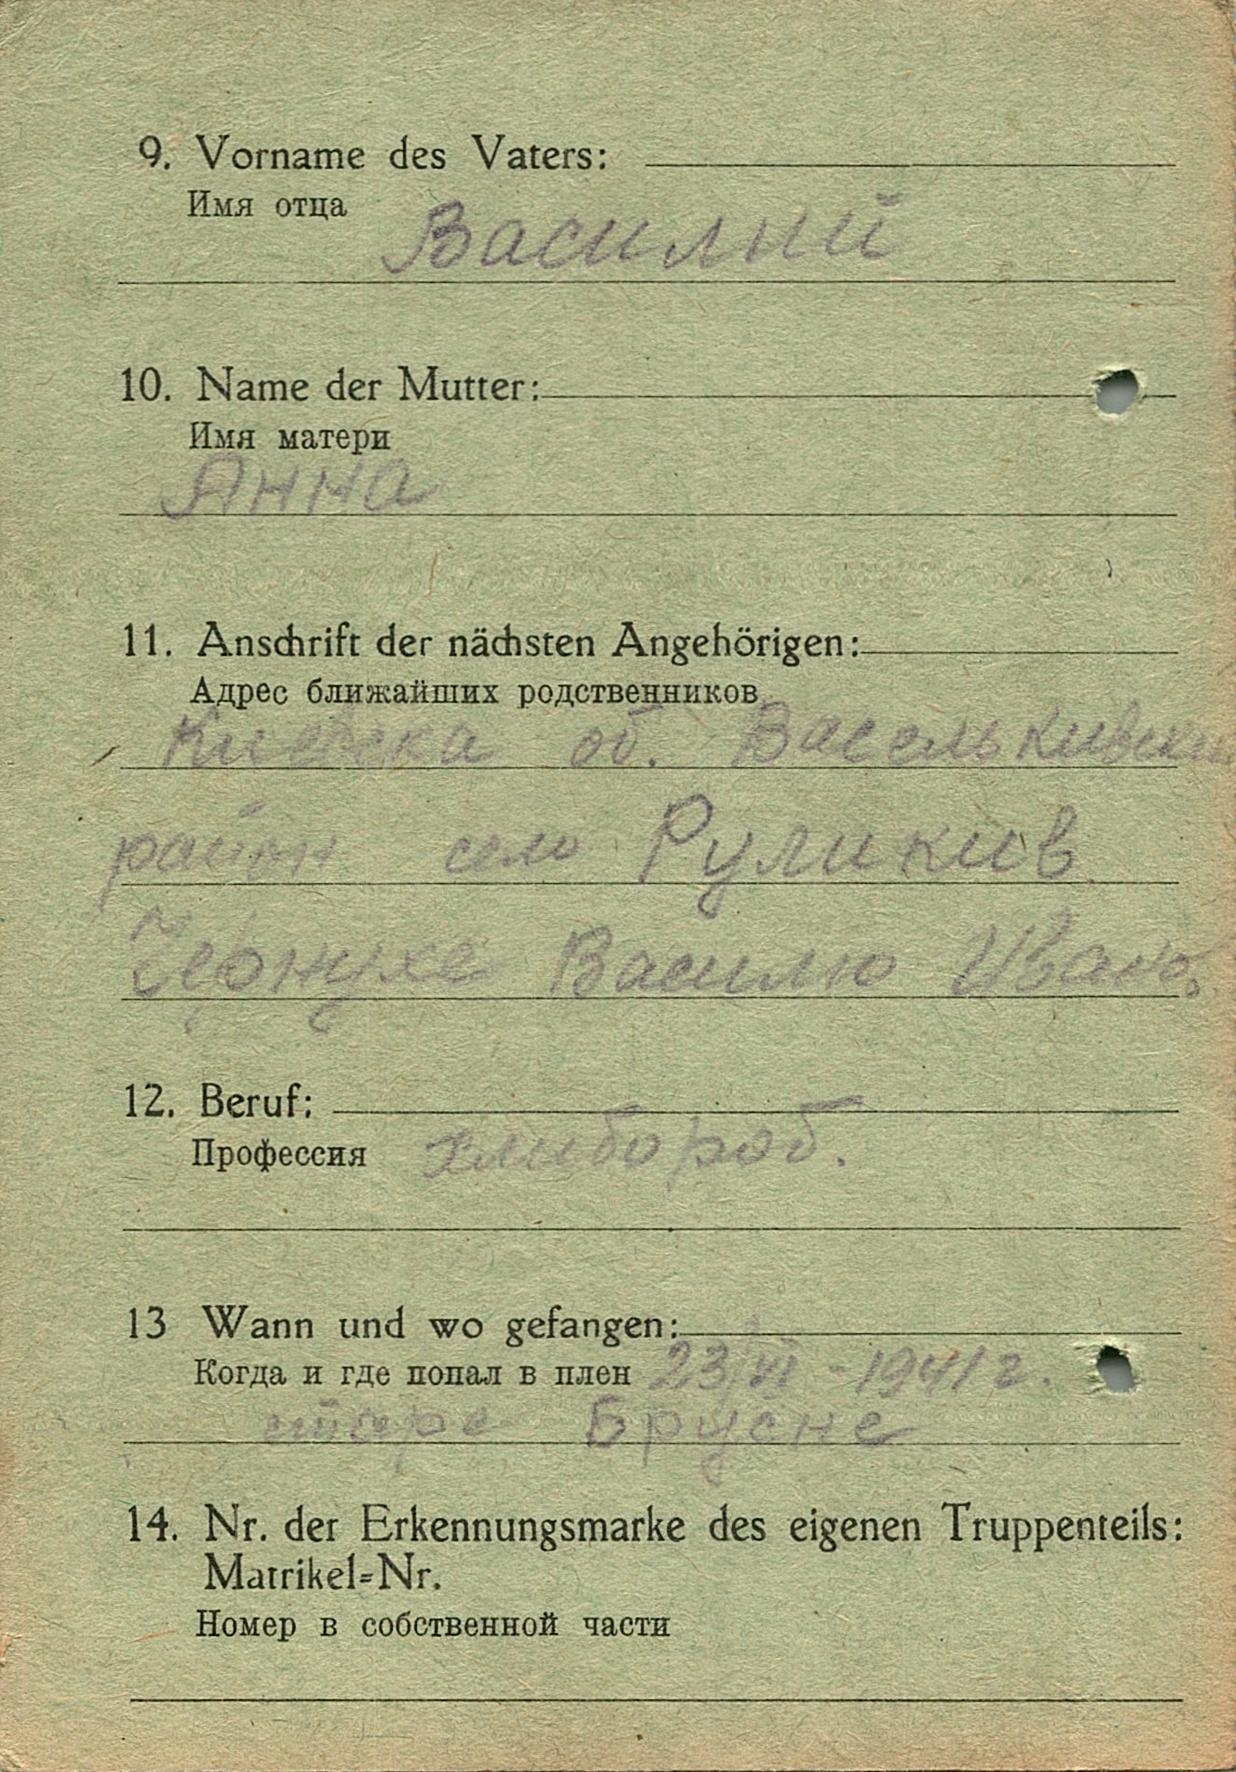 9. Vorname des Vaters:
Имя отца
Василий
10. Name der Mutter:
Имя матери
Анна
11. Anschrift der nächsten Angehörigen:
Адрес ближайших родственников
Киевска об. Василькивски
район село Руликив
Чернухе Василю Ивано
12. Beruf:
Профессия хлибороб.
13 Wann und wo gefangen:
Когда и где попал в плен 23/VI - 1941 г.
старе Брусне
14. Nr. der Erkennungsmarke des eigenen Truppenteils:
Matrikel=Nr.
Номер в собственной части